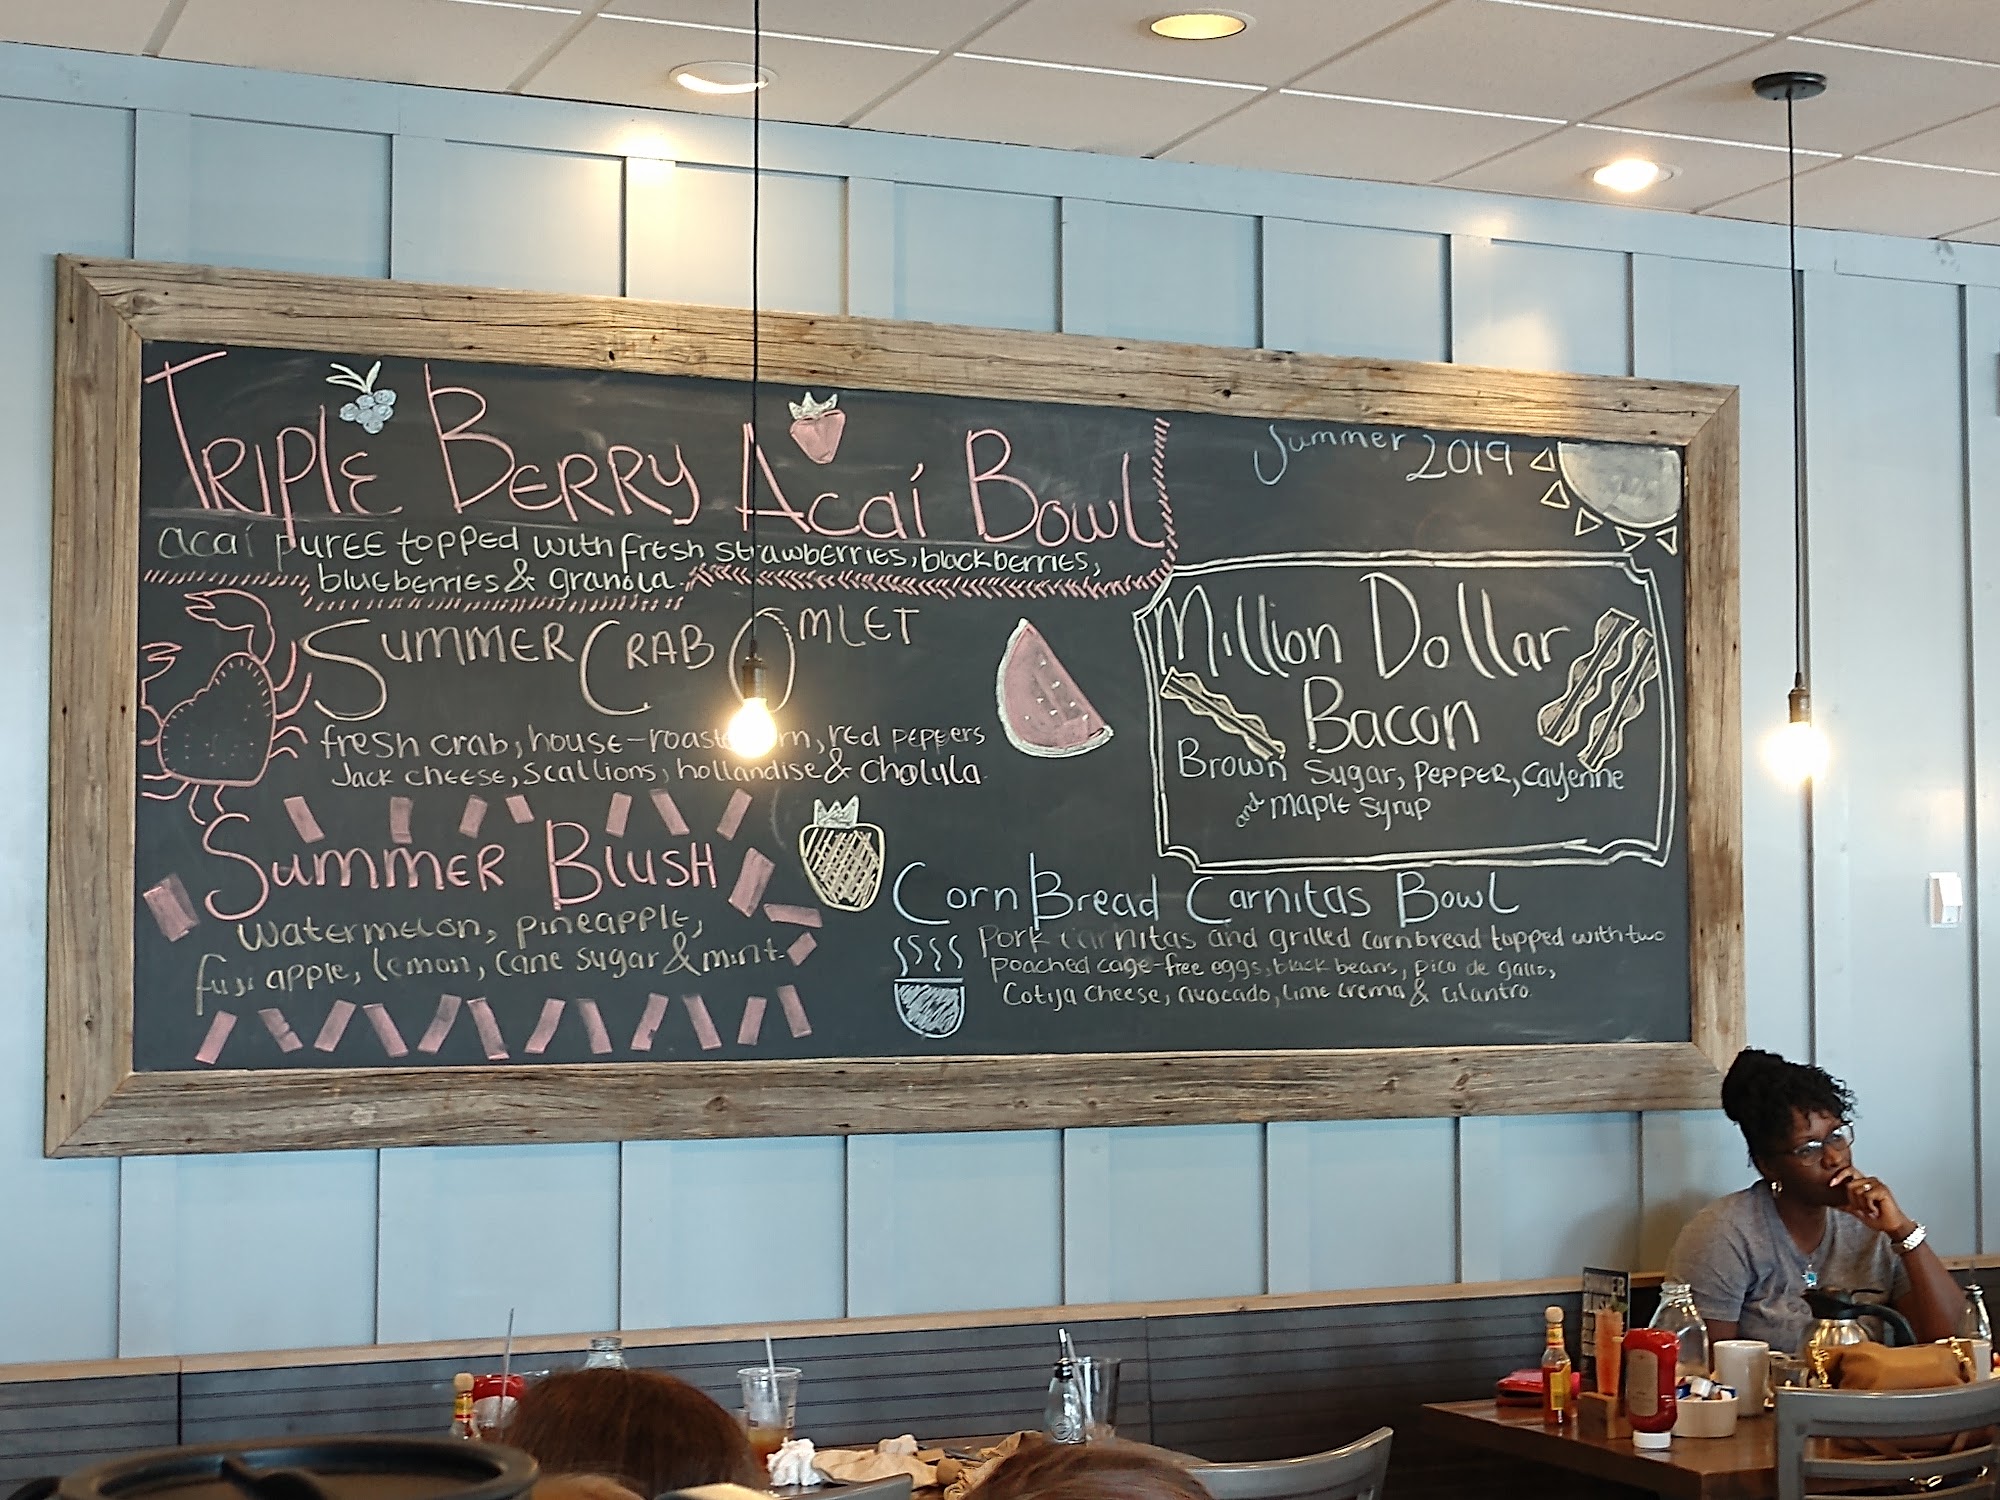 Triple Berry Acaí Bowl
acaí puree topped with fresh strawberries, blackberries,
blueberries & granola.
Summer Crab Omlet
fresh crab, house-roasted corn, red peppers
Jack cheese, scallions, hollandise & Cholula.
Summer Blush
watermelon, pineapple,
fuji apple, lemon, cane sugar & mint.
Summer 2019
Million Dollar
Bacon
Brown Sugar, Pepper, Cayenne
and maple syrup
Corn Bread Carnitas Bowl
Pork carnitas and grilled cornbread topped with two
poached cage-free eggs, black beans, pico de gallo,
Cotija cheese, avocado, lime crema & cilantro.